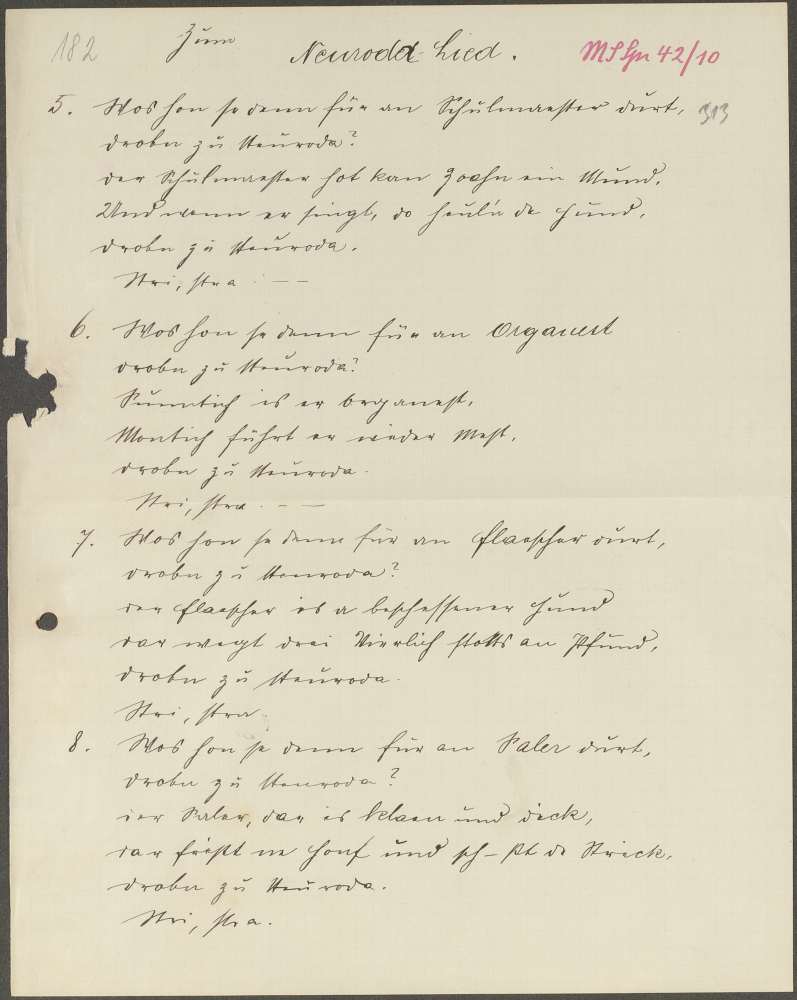 182 Zum Neuroda Lied. MS Gn 42/10
5. Wos hon se denn für an Schulmaester durt, 313
droba zu Neuroda?
der Schulmaester hot kan Zoahn ein Mund.
Und wenn er singt, do heul'n de Hund.
droba zu Neuroda.
Stri, stra. — —
6. Wos hon se denn für an Organest
droba zu Neuroda?
Sunntich is er Organest.
Montich führt er wieder Mest.
droba zu Neuroda.
Stri, stra. — —
7. Wos hon se denn für an Flaescher durt,
droba zu Neuroda?
der Flaescher is a beschessener Hund
dar wegt drei Vierlich stotts an Pfund,
droba zu Neuroda.
Stri, stra
8. Wos hon se denn für an Saler durt,
droba zu Neuroda?
der Saler, dar is klaen und dick,
dar frißt ne Honf und sch-ßt de Strecke,
droba zu Neuroda.
Stri, stra.